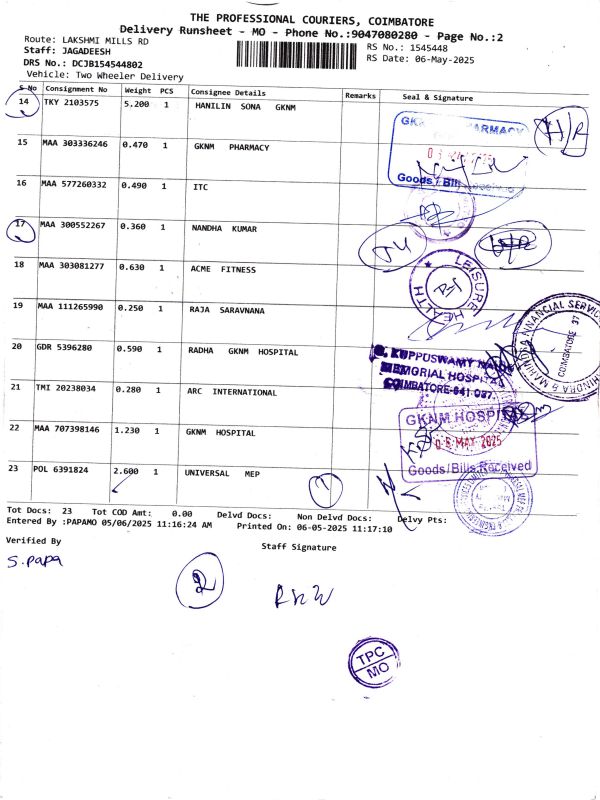 THE PROFESSIONAL COURIERS, COIMBATORE
Delivery Runsheet - MO - Phone No.:9047080280 - Page No.:2
Route: LAKSHMI MILLS RD
RS No.: 1545448
Staff: JAGADEESH
RS Date: 06-May-2025
DRS No.: DCJB154544802
Vehicle: Two Wheeler Delivery
S No Consignment No Weight PCS Consignee Details Remarks Seal & Signature
14 TKY 2103575 5.200 1 HANILIN SONA GKNM
15 MAA 303336246 0.470 1 GKNM PHARMACY
16 MAA 577260332 0.490 1 ITC
17 MAA 300552267 0.360 1 NANDHA KUMAR
18 MAA 303081277 0.630 1 ACME FITNESS
19 MAA 111265990 0.250 1 RAJA SARAVNANA
20 GDR 5396280 0.590 1 RADHA GKNM HOSPITAL
21 TMI 20238034 0.280 1 ARC INTERNATIONAL
22 MAA 707398146 1.230 1 GKNM HOSPITAL
23 POL 6391824 2.600 1 UNIVERSAL MEP
PHARMACY
Goods / Bills
LEISURE HEALTH
MAHINDRA & MAHINDRA FINANCIAL SERVICES
COIMBATORE 37
G. KUPPUSWAMY NAIDU
MEMORIAL HOSPITAL
COIMBATORE-641 037.
GKNM HOSPITAL
06 MAY 2025
Goods/Bills Received
1
Tot Docs: 23 Tot COD Amt: 0.00 Delvd Docs: Non Delvd Docs: Delvy Pts:
Entered By :PAPAMO 05/06/2025 11:16:24 AM Printed On: 06-05-2025 11:17:10
Verified By
Staff Signature
S.Papa
2
TPC
MO